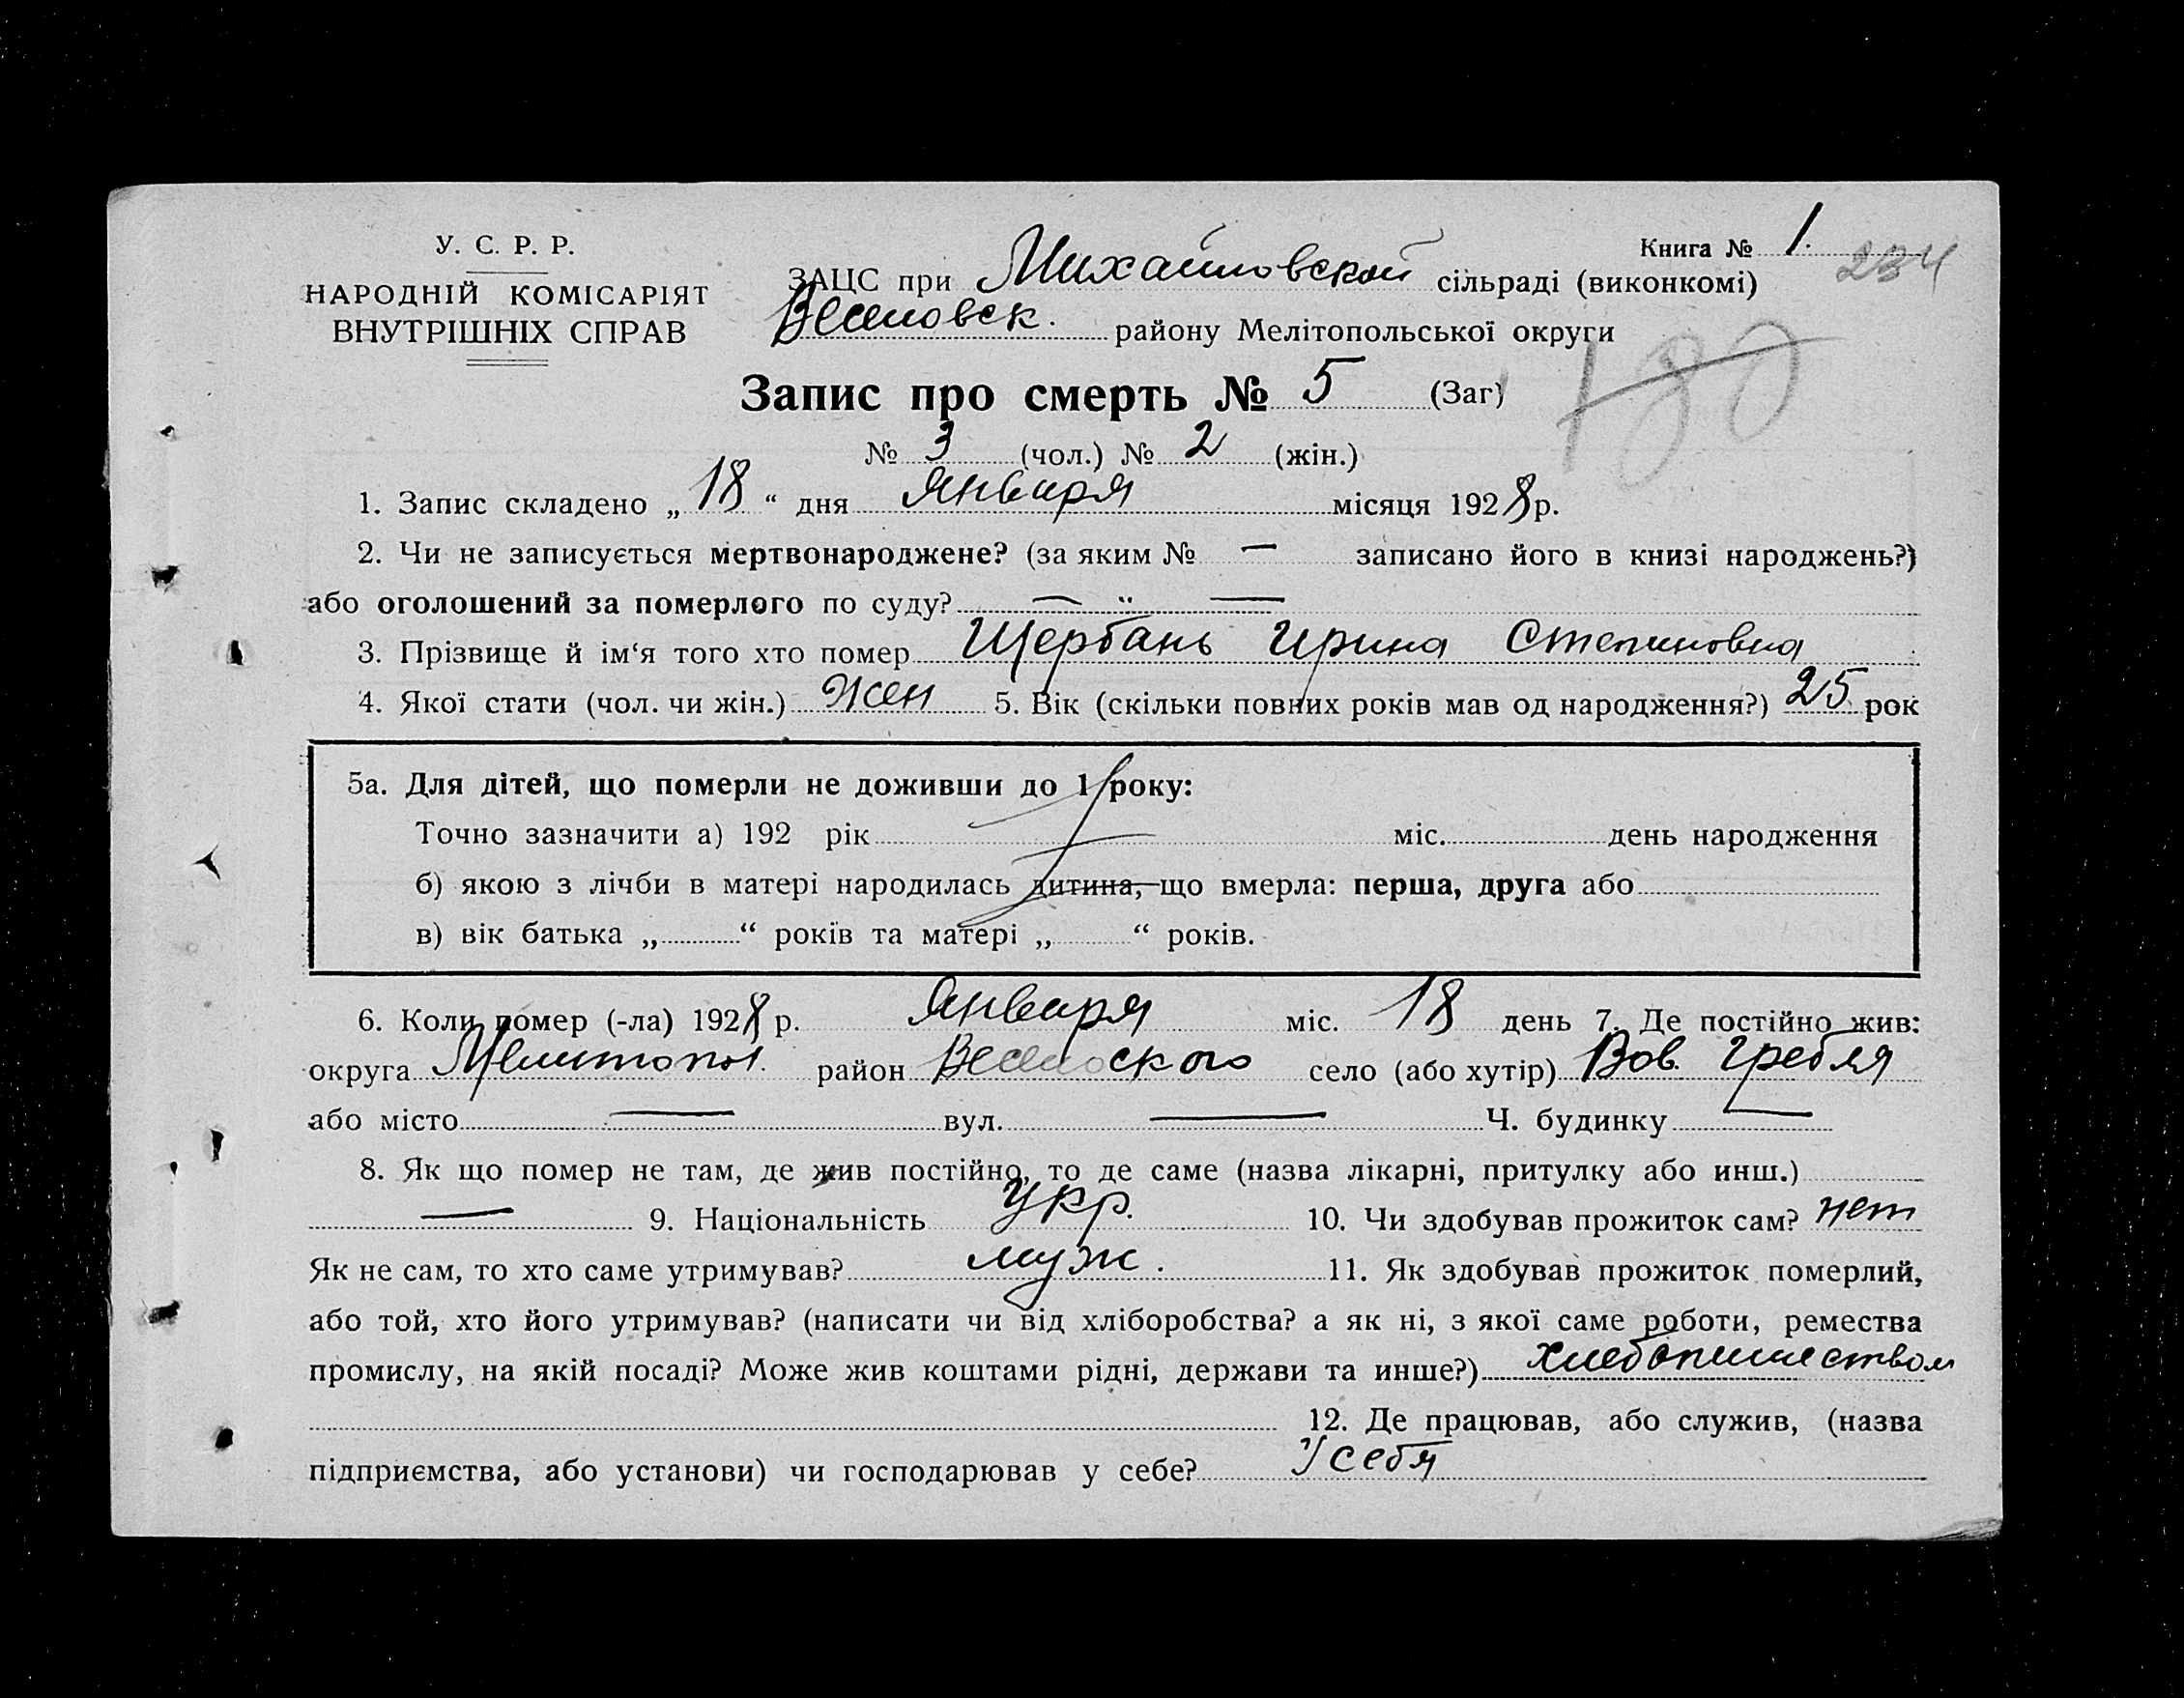 У. С. Р. Р.
НАРОДНІЙ КОМІСАРІЯТ
ВНУТРІШНІХ СПРАВ
Книга № 1. 234
ЗАЦС при Михайловской сільраді (виконкомі)
Веселовск. району Мелітопольської округи
180
Запис про смерть № 5 (Заг)
№ 3 (чол.) № 2 (жін.)
1. Запис складено „ 18 “ дня Января місяця 1928 р.
2. Чи не записується мертвонароджене? (за яким № — записано його в книзі народжень?)
або оголошений за померлого по суду? — " —
3. Прізвище й ім‘я того хто помер Щербань Ирина Степановна
4. Якої стати (чол. чи жін.) Жен 5. Вік (скільки повних років мав од народження?) 25 рок
5а. Для дітей, що померли не доживши до 1 року:
Точно зазначити а) 192 рік міс. день народження
б) якою з лічби в матері народилась дитина, що вмерла: перша, друга або
в) вік батька „ “ років та матері „ “ років.
6. Коли помер (-ла) 1928 р. Января міс. 18 день 7. Де постійно жив:
округа Мелитопол. район Веселоского село (або хутір) Вов. Гребля
або місто — вул. — Ч. будинку —
8. Як що помер не там, де жив постійно, то де саме (назва лікарні, притулку або инш.)
— 9. Національність Укр. 10. Чи здобував прожиток сам? нет
Як не сам, то хто саме утримував? муж. 11. Як здобував прожиток померлий,
або той, хто його утримував? (написати чи від хліборобства? а як ні, з якої саме роботи, ремества
промислу, на якій посаді? Може жив коштами рідні, держави та инше?) хлебопашеством
12. Де працював, або служив, (назва
підприємства, або установи) чи господарював у себе? У себя